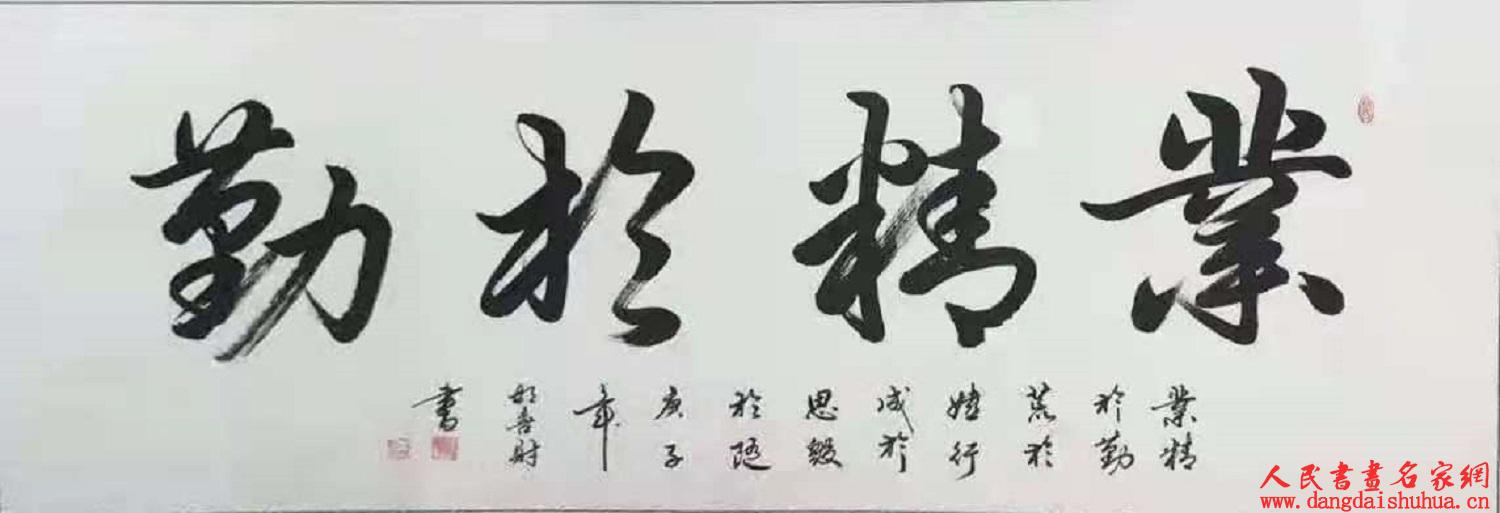 業精於勤
業精
於勤
荒於
嬉行
成於
思毀
於隨
庚子
年
喜財
書
人民書畫名家網
www.dangdaishuhua.cn